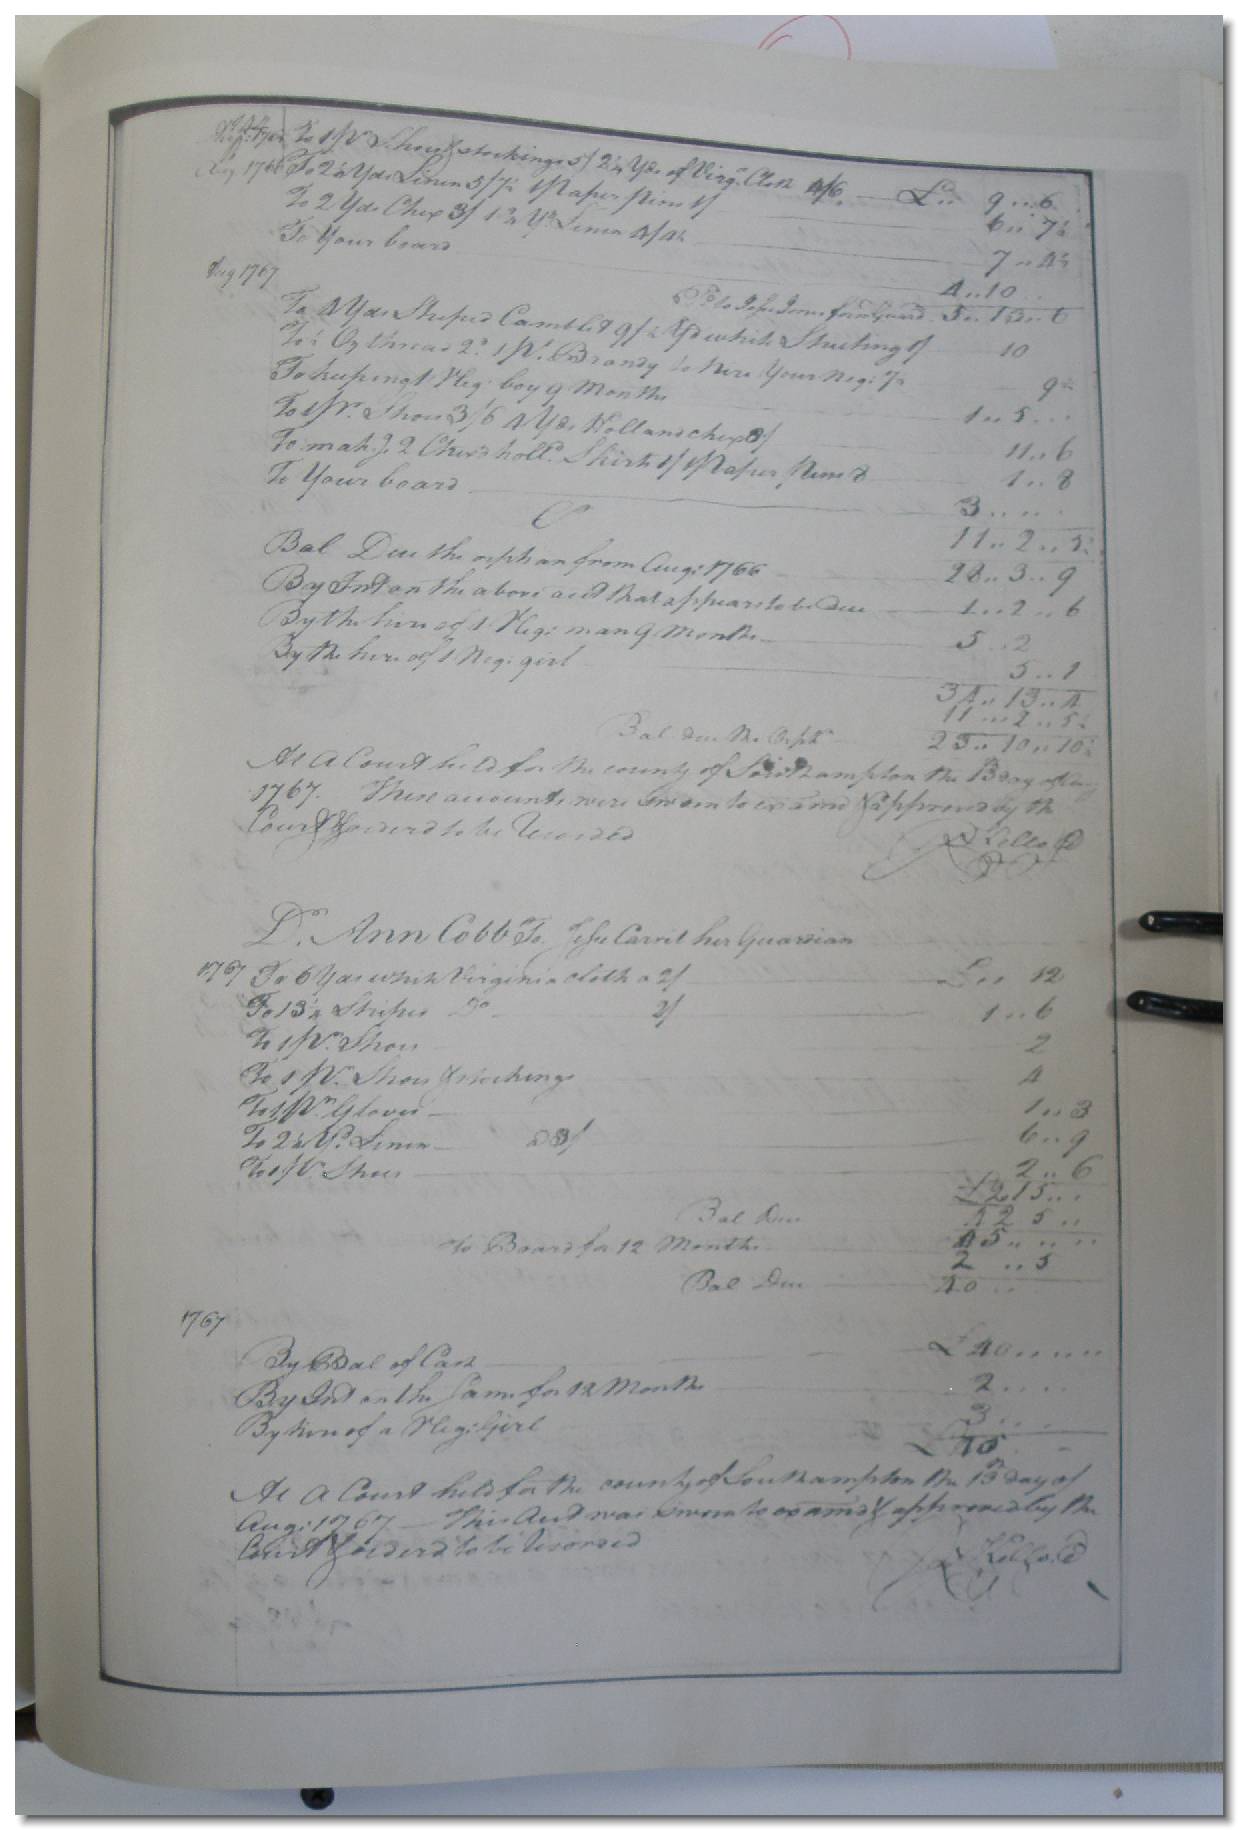 To 1 pr Shoes & stockings 5/ 2¼ Yds of Virga Cloth 4/6 £.. 9..6
Aug 1766 To 2½ Yds Linen 5/7½ 1 paper pins 1/ 6..7½
To 2 Yds Chex 3/ 1¾ Yd Linen 4/4½ 7..4½
To Your board 4..10
5..13..6
Aug 1767
To 4 Yds Striped Camblet 9/ ½ Yd white 1/ 10
To ½ Oz thread 2d 1 pt Brandy to Your Neg: 7½ 9½
To keeping 1 Neg: boy 9 Months 1..5...
To 1 pr Shoes 3/6 4 Yds Holland chex 8/ 11..6
To makg 2 Chexd holld Shirts 1/ 1 paper pins 8 1..8
To Your board 3....
Cr 11..2..5½
Bal Due the orphan from Aug: 1766 28..3..9
By Int on the above acct that appears to be Due 1..2..6
By the hire of 1 Neg: man 9 Months 5..2
By the hire of 1 Neg: girl 5..1
34..13..4
11..2..5½
Bal due the Orpn 23..10..10½
At a Court held for the county of Southampton the 13 day of Aug
1767. These accounts were sworn to examd & approved by the
Court & orderd to be Recorded
Kello CC
Dr. Ann Cobb To Jesse Carril her Guardian
1767 To 6 Yds white Virginia cloth a 2/ £.. 12
To 13¼ Stripes Do 2/ 1..6
To 1 pr. Shoes 2
To 1 pr. Shoes & stockings 4
To 1 pr Gloves 1..3
To 2¼ Yd. Linen a 3/ 6..9
To 1 pr. Shoes 2..6
£2.15..
Bal Due 42 5..
To Board for 12 Months 45......
2 ..5
Bal Due 40..
1767
By Bal of Cash £ 40.....
By Int on the Same for 12 Months 2....
By hire of a Neg: Girl 3...
£ 45
At a Court held for the county of Southampton the 13th day of
Aug: 1767 — This Acct was sworn to examd & approved by the
Court & orderd to be Recorded
Kello. CC